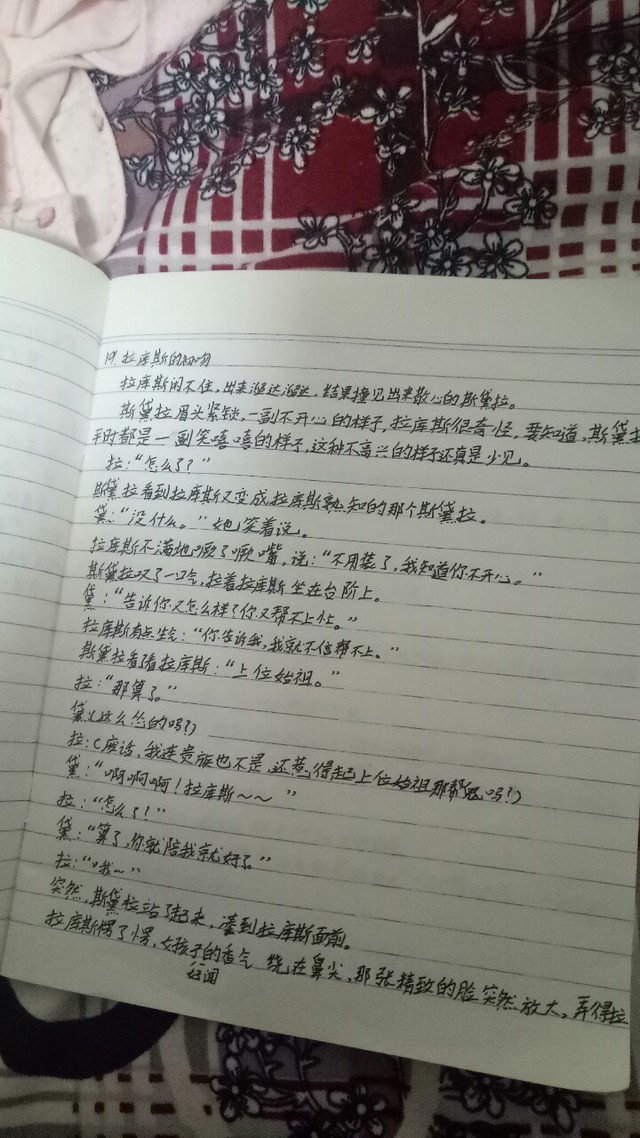 19 拉库斯的初吻
拉库斯闲不住，出来溜达溜达，结果撞见出来散心的斯黛拉。
斯黛拉眉头紧锁，一副不开心的样子，拉库斯很奇怪，要知道，斯黛拉
平时都是一副笑嘻嘻的样子，这种不高兴的样子还真是少见。
拉：“怎么了？”
斯黛拉看到拉库斯又变成拉库斯熟知的那个斯黛拉。
黛：“没什么。”她笑着说。
拉库斯不满地噘了噘嘴，说：“不用装了，我知道你不开心。”
斯黛拉叹了一口气，拉着拉库斯坐在台阶上。
黛：“告诉你又怎么样？你又帮不上忙。”
拉库斯有点生气：“你告诉我，我就不信帮不上。”
斯黛拉看了看拉库斯：“上位始祖。”
拉：“那算了。”
黛：（这么怂的吗？）
拉：（废话，我连贵族也不是，还惹得起上位始祖那帮 吗？）
黛：“啊啊啊！拉库斯～～”
拉：“怎么了？”
黛：“算了，你就陪我就好了。”
拉：“哦～”
突然，斯黛拉站了起来，凑到拉库斯面前。
拉库斯愣了愣，女孩子的香气 绕在鼻尖，那张精致的脸突然放大，弄得拉